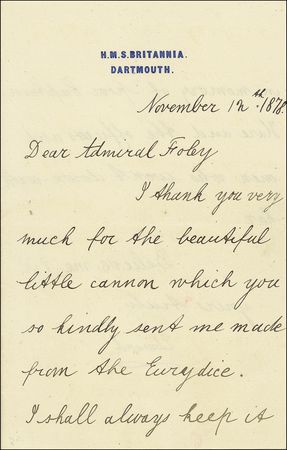 H.M.S. BRITANNIA.
DARTMOUTH.
November 12th. 1878.
Dear Admiral Foley
I thank you very
much for the beautiful
little cannon which you
so kindly sent me made
from the Eurydice.
I shall always keep it